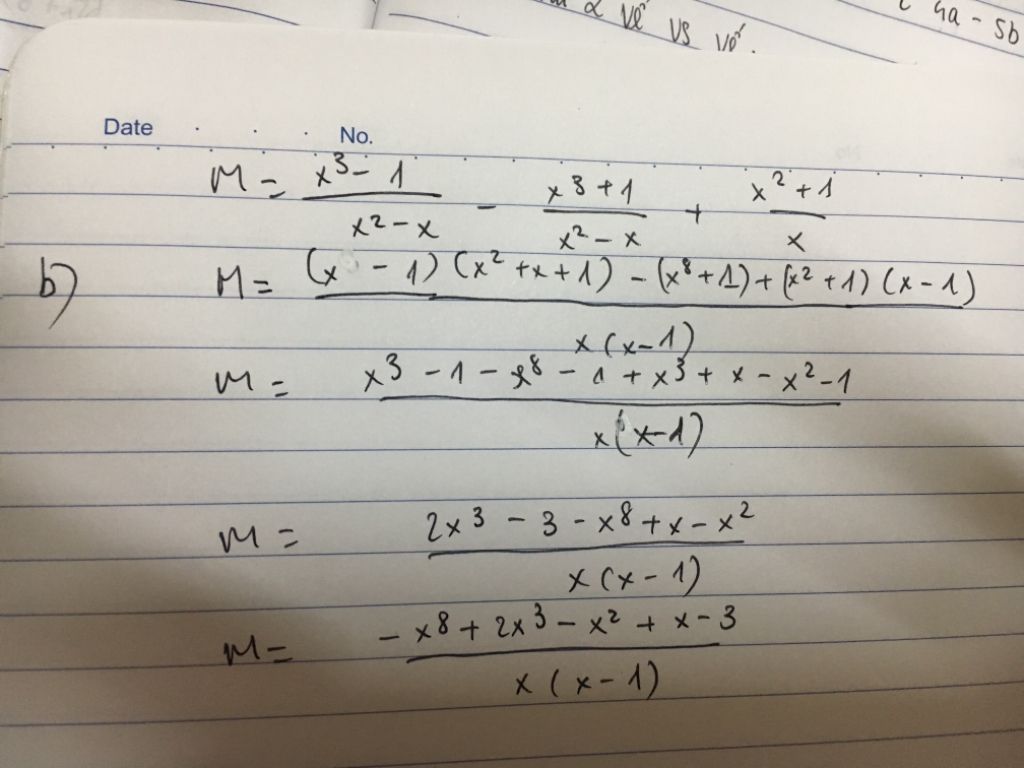 α vẽ vs vẽ.
4a - 5b
Date No.
M = \frac{x^3 - 1}{x^2 - x} - \frac{x^8 + 1}{x^2 - x} + \frac{x^2 + 1}{x}
b) M = \frac{(x - 1)(x^2 + x + 1) - (x^8 + 1) + (x^2 + 1)(x - 1)}{x(x - 1)}
M = \frac{x^3 - 1 - x^8 - 1 + x^3 + x - x^2 - 1}{x(x - 1)}
M = \frac{2x^3 - 3 - x^8 + x - x^2}{x(x - 1)}
M = \frac{-x^8 + 2x^3 - x^2 + x - 3}{x(x - 1)}